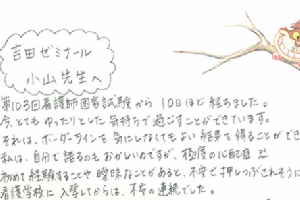 吉田ゼミナール
小山先生へ
第103回看護師国家試験から10日ほど経ちました。
今、とてもゆったりとした気持ちで過ごすことができています。
それは、ボーダーラインを気にしなくてもよい結果を得ることができ
私は、自分で語るのもおかしいのですが、極度の心配症で
初めて経験することや曖昧なことがあると、不安で押しつぶされそうに
看護学校に入学してからは、不安の連続でした。